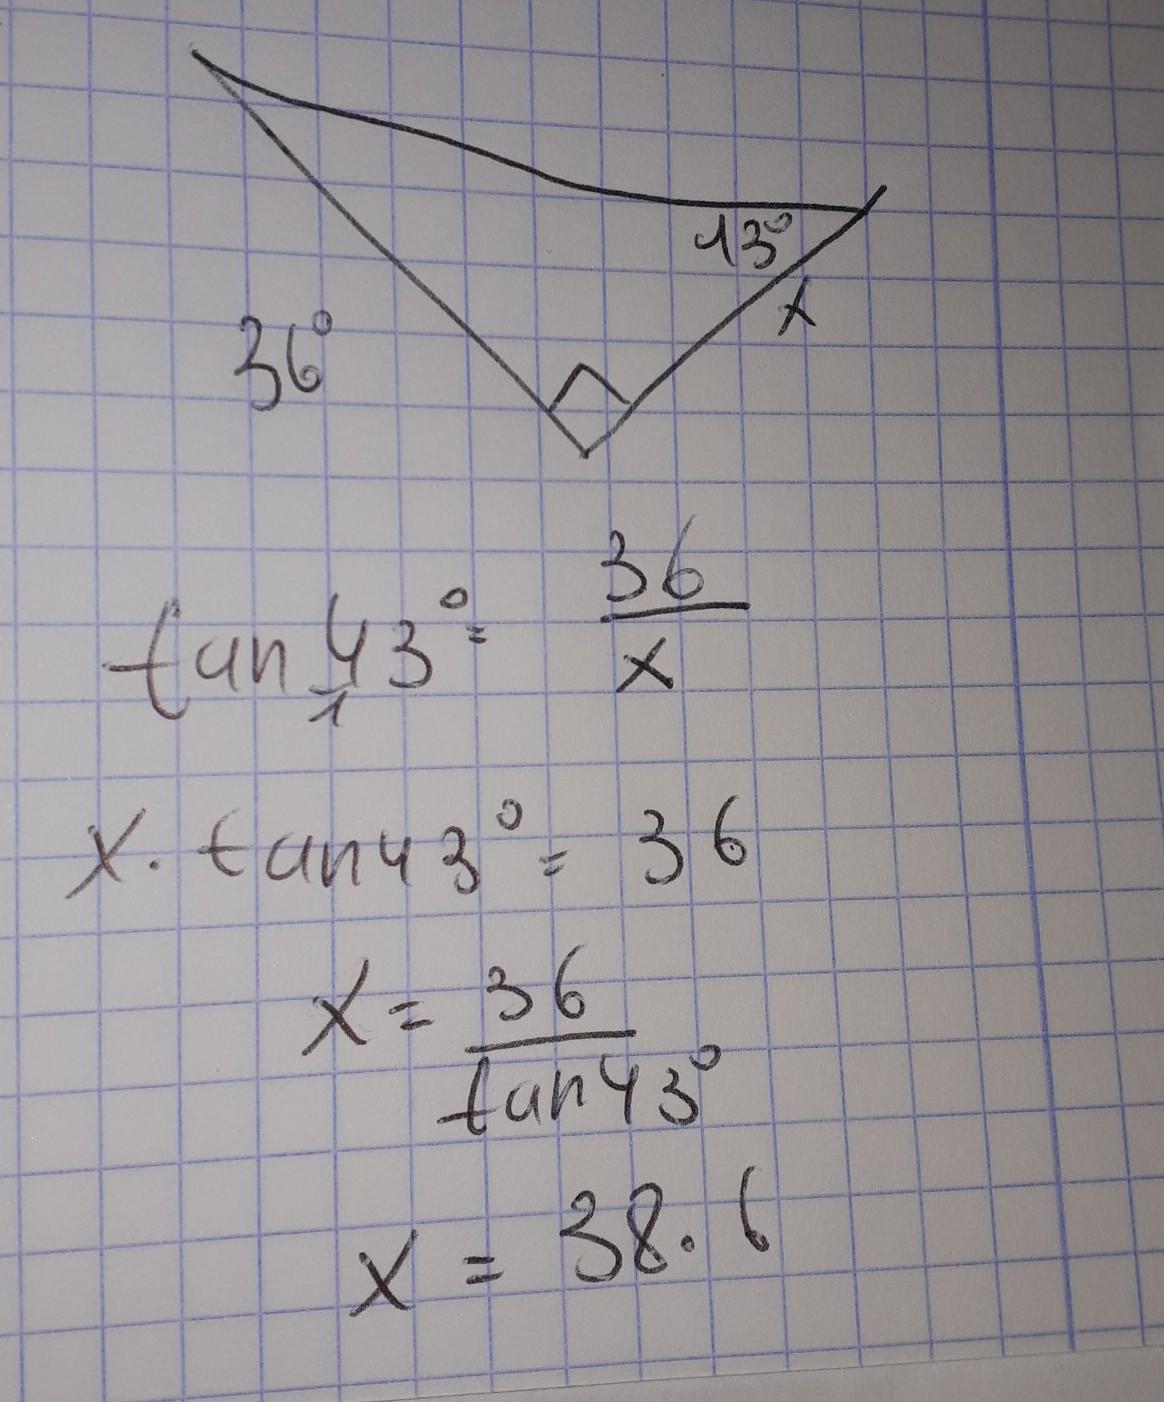 43°
x
36°
tan 43° = 36/x
1
x · tan 43° = 36
x = 36/tan 43°
x = 38.6